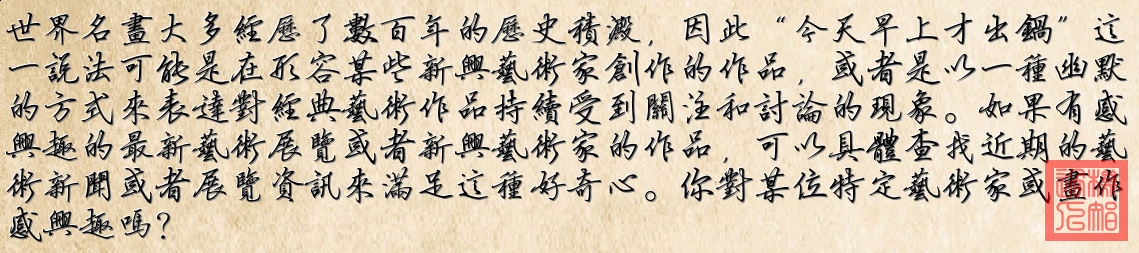 世界名畫大多經歷了數百年的歷史積澱，因此“今天早上才出鍋”這
一說法可能是在形容某些新興藝術家創作的作品，或者是以一種幽默
的方式來表達對經典藝術作品持續受到關注和討論的現象。如果有感
興趣的最新藝術展覽或者新興藝術家的作品，可以具體查找近期的藝
術新聞或者展覽資訊來滿足這種好奇心。你對某位特定藝術家或畫作
感興趣嗎？